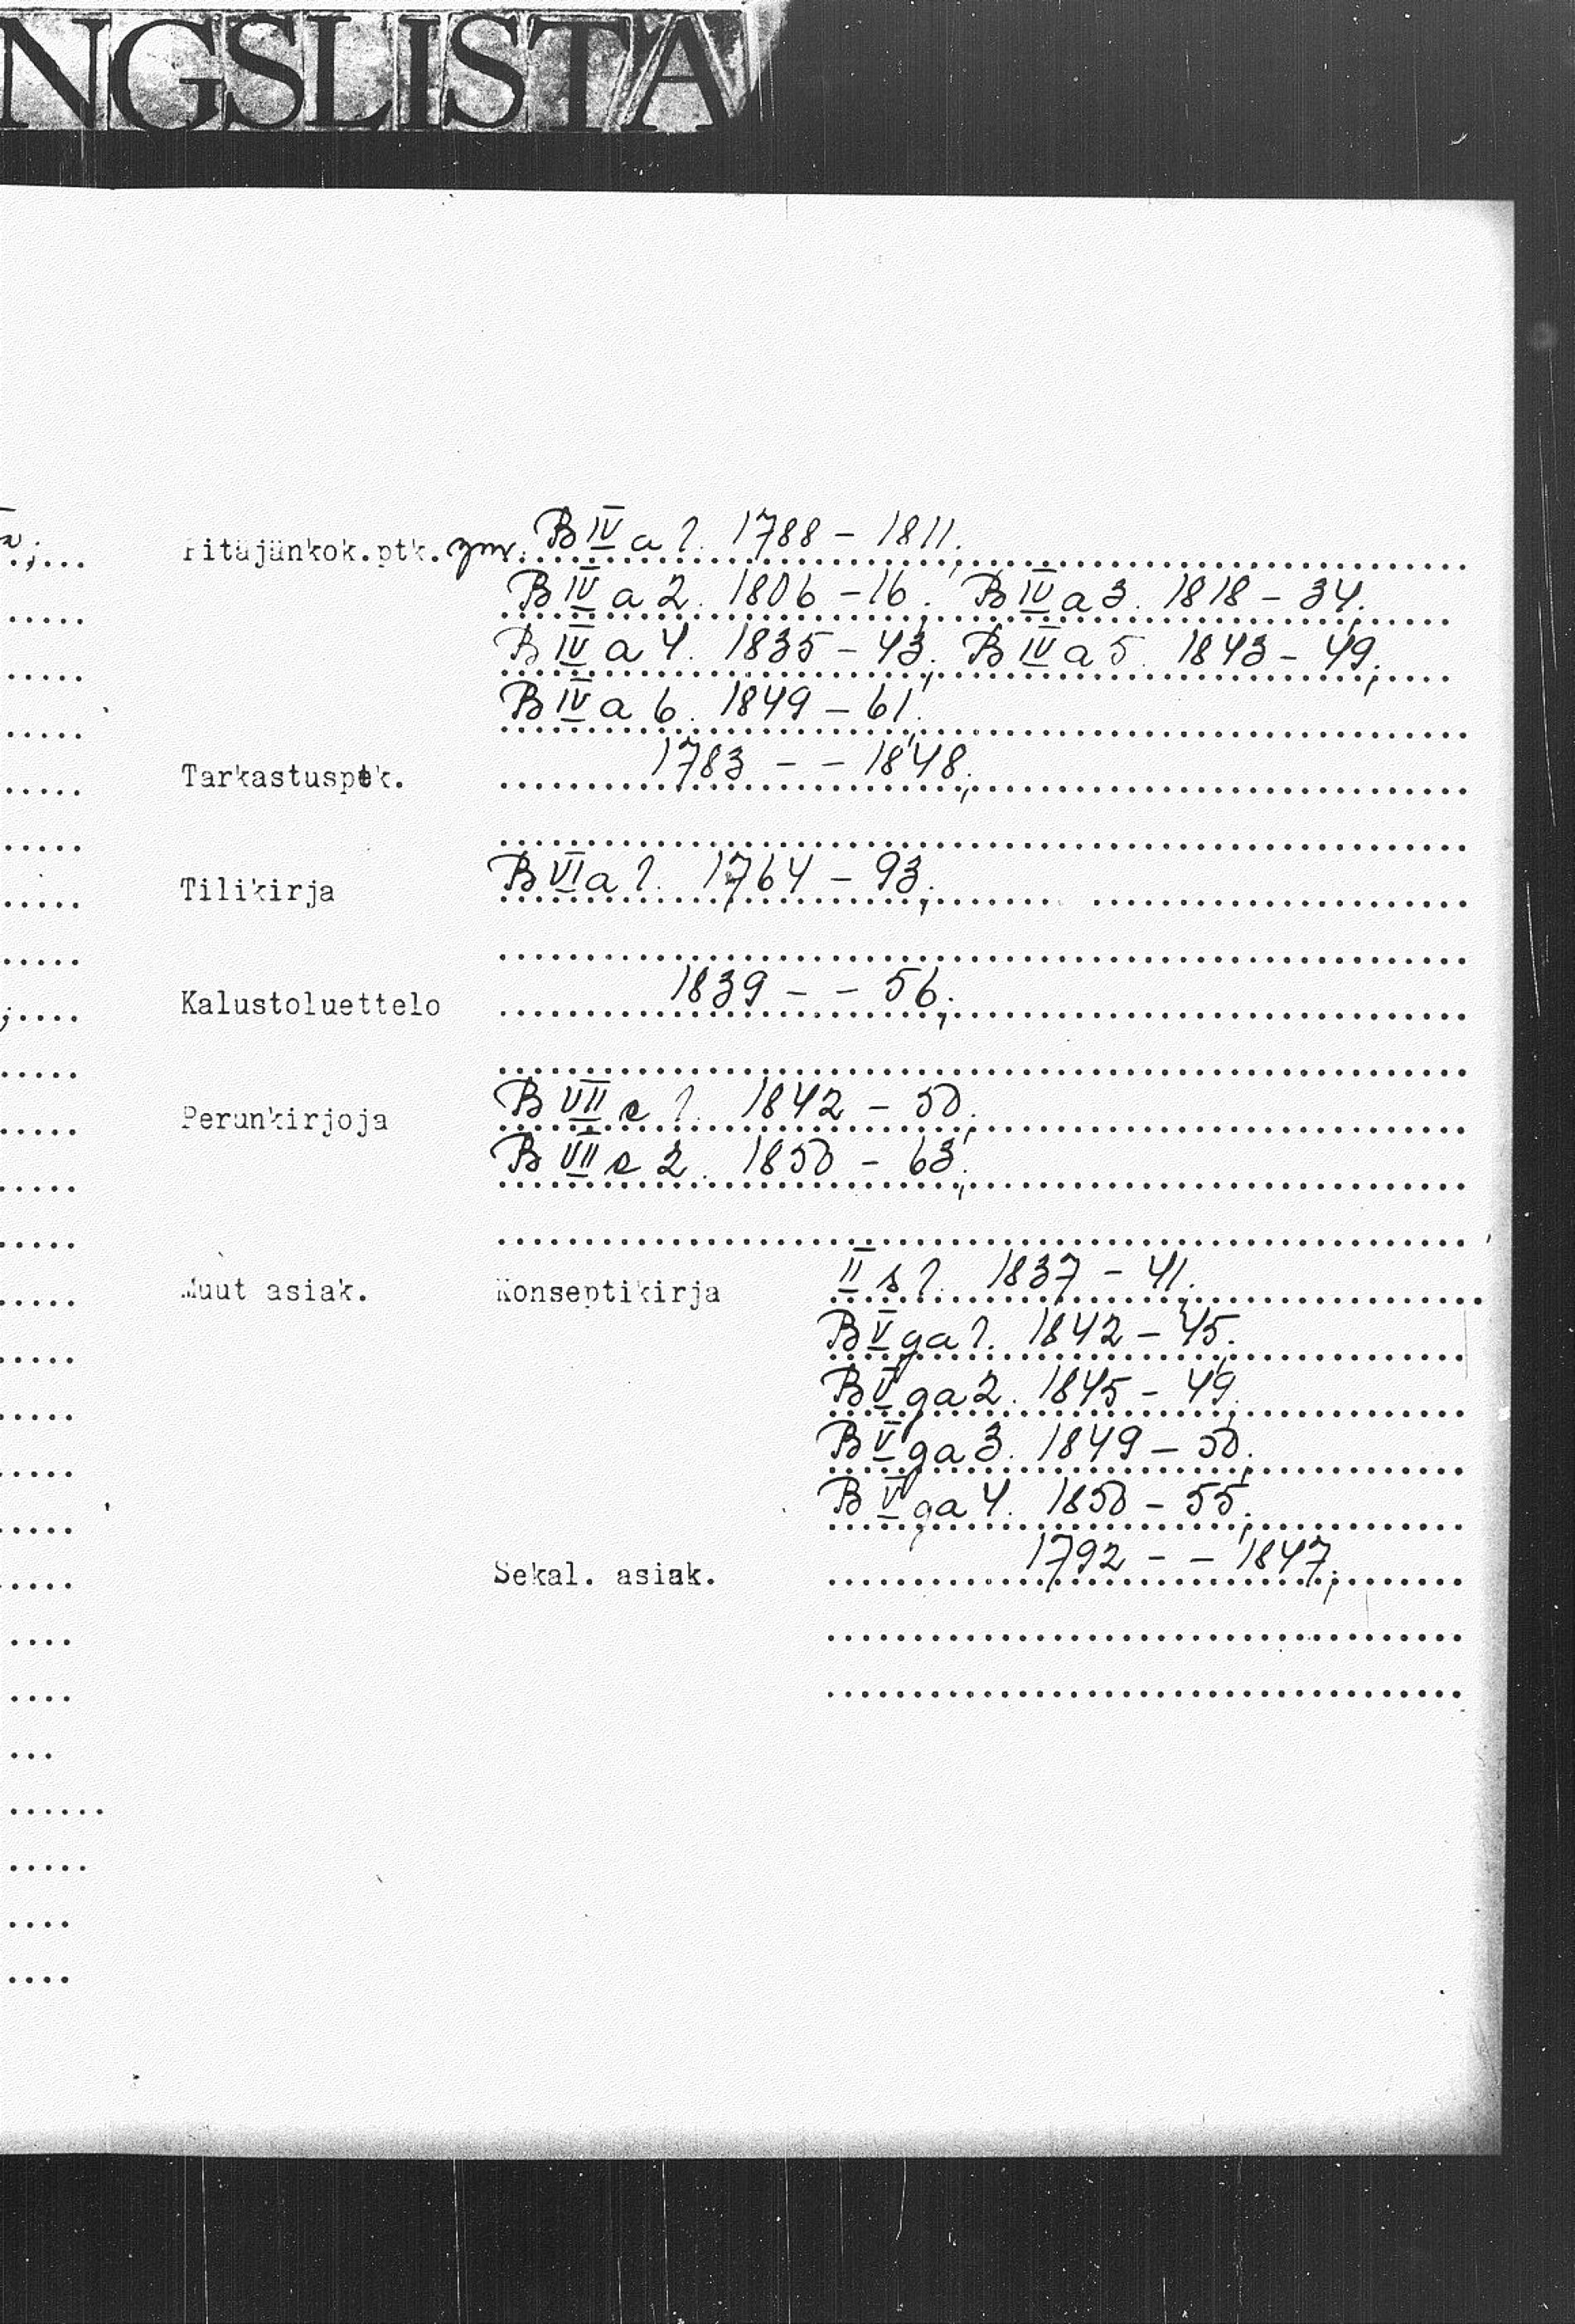 NGSLISTA
Pitäjänkok.ptk. ym. B IV a 1. 1788 - 1811;
B IV a 2. 1806 - 16; B IV a 3. 1818 - 34;
B IV a 4. 1835 - 43; B IV a 5. 1843 - 49;
B IV a 6. 1849 - 61;
Tarkastusptk. 1783 - - 1848;
Tilikirja B VI a 1. 1764 - 93;
Kalustoluettelo 1839 - - 56;
Perunkirjoja B VII c 1. 1842 - 50;
B VII c 2. 1850 - 63;
Muut asiak. Konseptikirja II s 1. 1837 - 41;
B V ga 1. 1842 - 45;
B V ga 2. 1845 - 49;
B V ga 3. 1849 - 50;
B V ga 4. 1850 - 55;
Sekal. asiak. 1792 - - 1847;